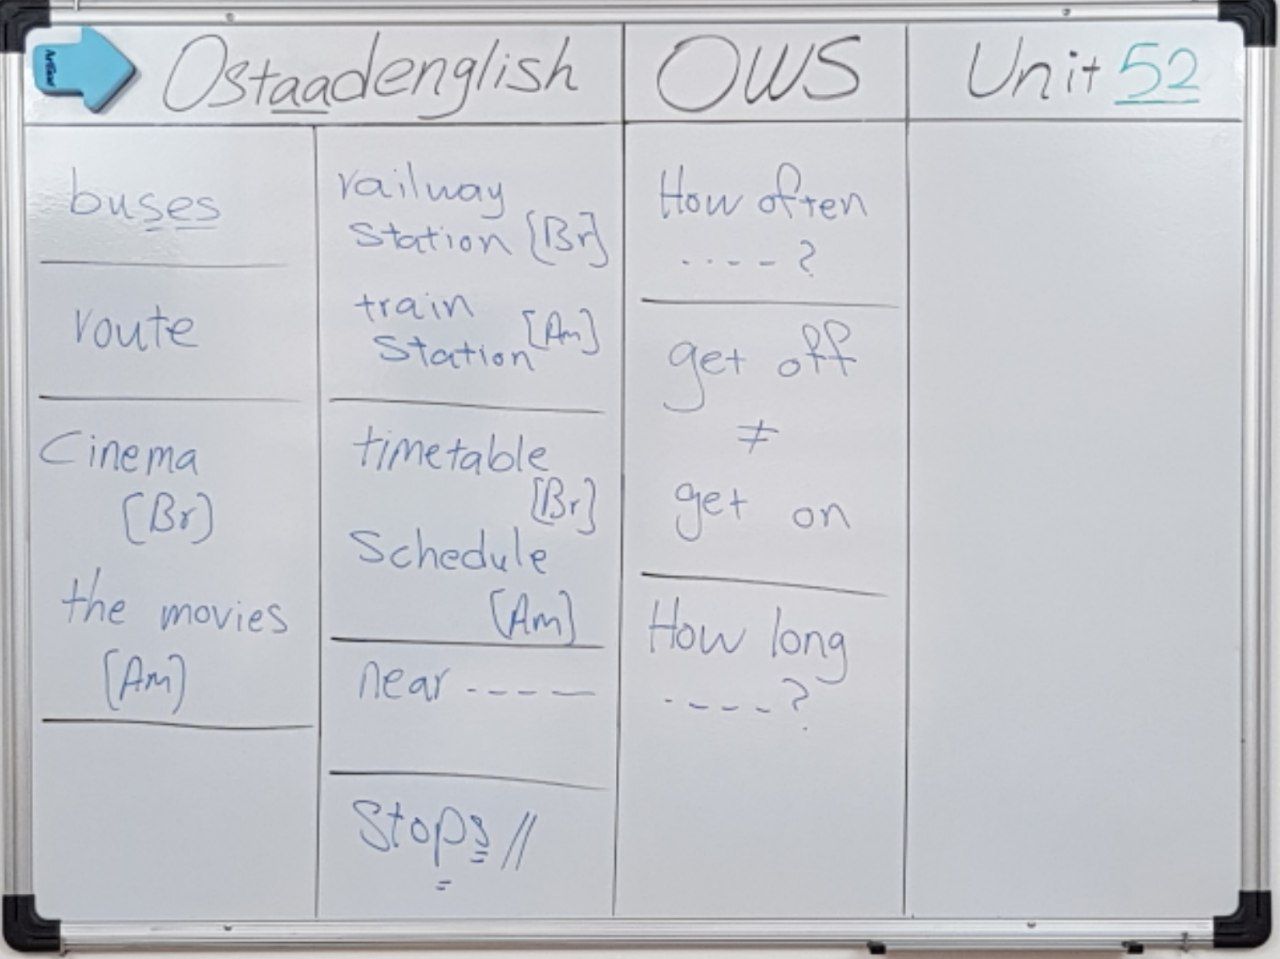 Ostaadenglish
OWS
Unit 52
buses
route
Cinema
[Br]
the movies
[Am]
railway
station [Br]
train
station [Am]
timetable
[Br]
Schedule
[Am]
near ----
Stops //
How often
----?
get off
≠
get on
How long
----?